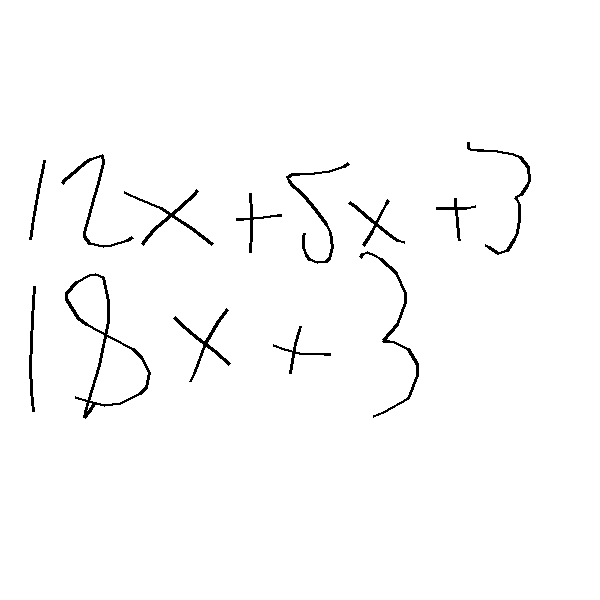 12x+5x+3
18x+3